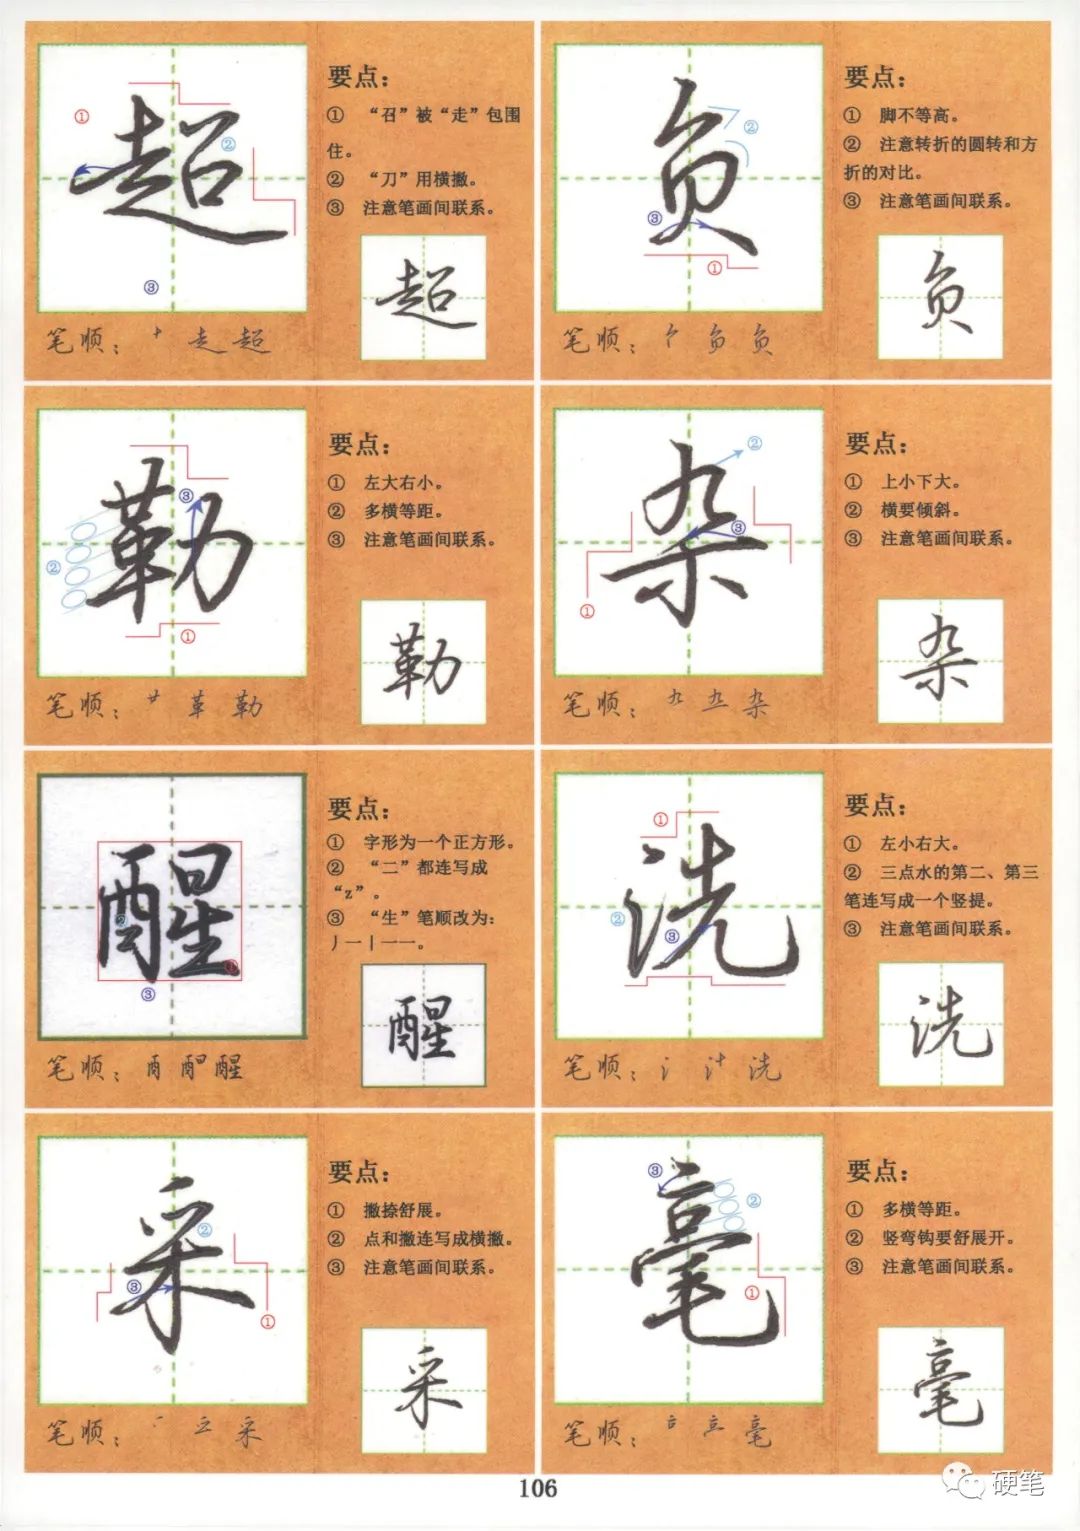 超
要点：
① “召”被“走”包围
住。
② “刀”用横撇。
③ 注意笔画间联系。
①
②
③
超
笔顺： 走 超
负
要点：
① 脚不等高。
② 注意转折的圆转和方
折的对比。
③ 注意笔画间联系。
②
③
①
负
笔顺： 负
勒
要点：
① 左大右小。
② 多横等距。
③ 注意笔画间联系。
③
②
①
勒
笔顺： 革 勒
杂
要点：
① 上小下大。
② 横要倾斜。
③ 注意笔画间联系。
②
③
①
杂
笔顺： 九 杂
醒
要点：
① 字形为一个正方形。
② “二”都连写成
“z”。
③ “生”笔顺改为：
丿一丨一一。
②
①
③
醒
笔顺： 醒
洗
要点：
① 左小右大。
② 三点水的第二、第三
笔连写成一个竖提。
③ 注意笔画间联系。
①
②
③
洗
笔顺： 氵 洗
采
要点：
① 撇捺舒展。
② 点和撇连写成横撇。
③ 注意笔画间联系。
②
③
①
采
笔顺： 采
毫
要点：
① 多横等距。
② 竖弯钩要舒展开。
③ 注意笔画间联系。
③
②
①
毫
笔顺： 毫
106
硬笔